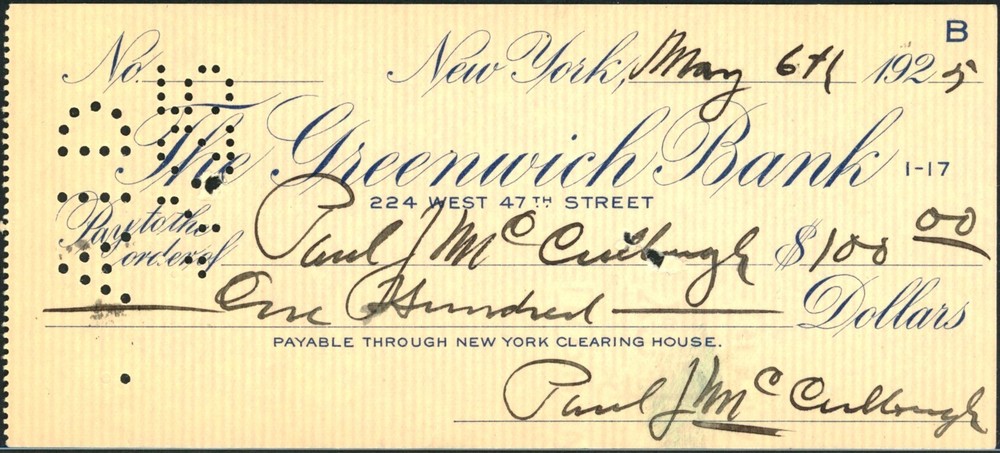 B
No. New York, May 6th 1925
The Greenwich Bank 1-17
224 WEST 47TH STREET
Pay to the order of Paul J McCullough $100 00
One Hundred Dollars
PAYABLE THROUGH NEW YORK CLEARING HOUSE.
Paul J McCullough